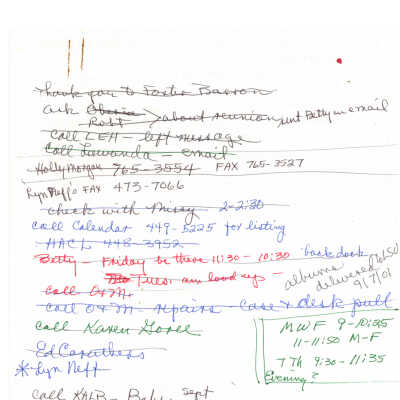 Thank you to Foster Barron
ask Gloria
Robt > about reunion, sent Betty an email
call LEH - left message
Call Luwanda - email
Holly Morgan 765-3554 FAX 765-3527
Lyn Neff's FAX 473-7066
check with Missy 2-2:30
call Calendar 449-5225 for listing
HACL 448-3952
Betty - Friday be there 11:30 - 10:30 back dock
Tues am load up -
albums delivered 9/7/01
call O&M.
call O&M - repairs - case & desk pull
call Karen Goree
Ed Caruthers
*Lyn Neff
MWF 9-10:25
11-11:50 M-F
TTh 9:30-11:35
Evening?
call KALB - Baby, Sept